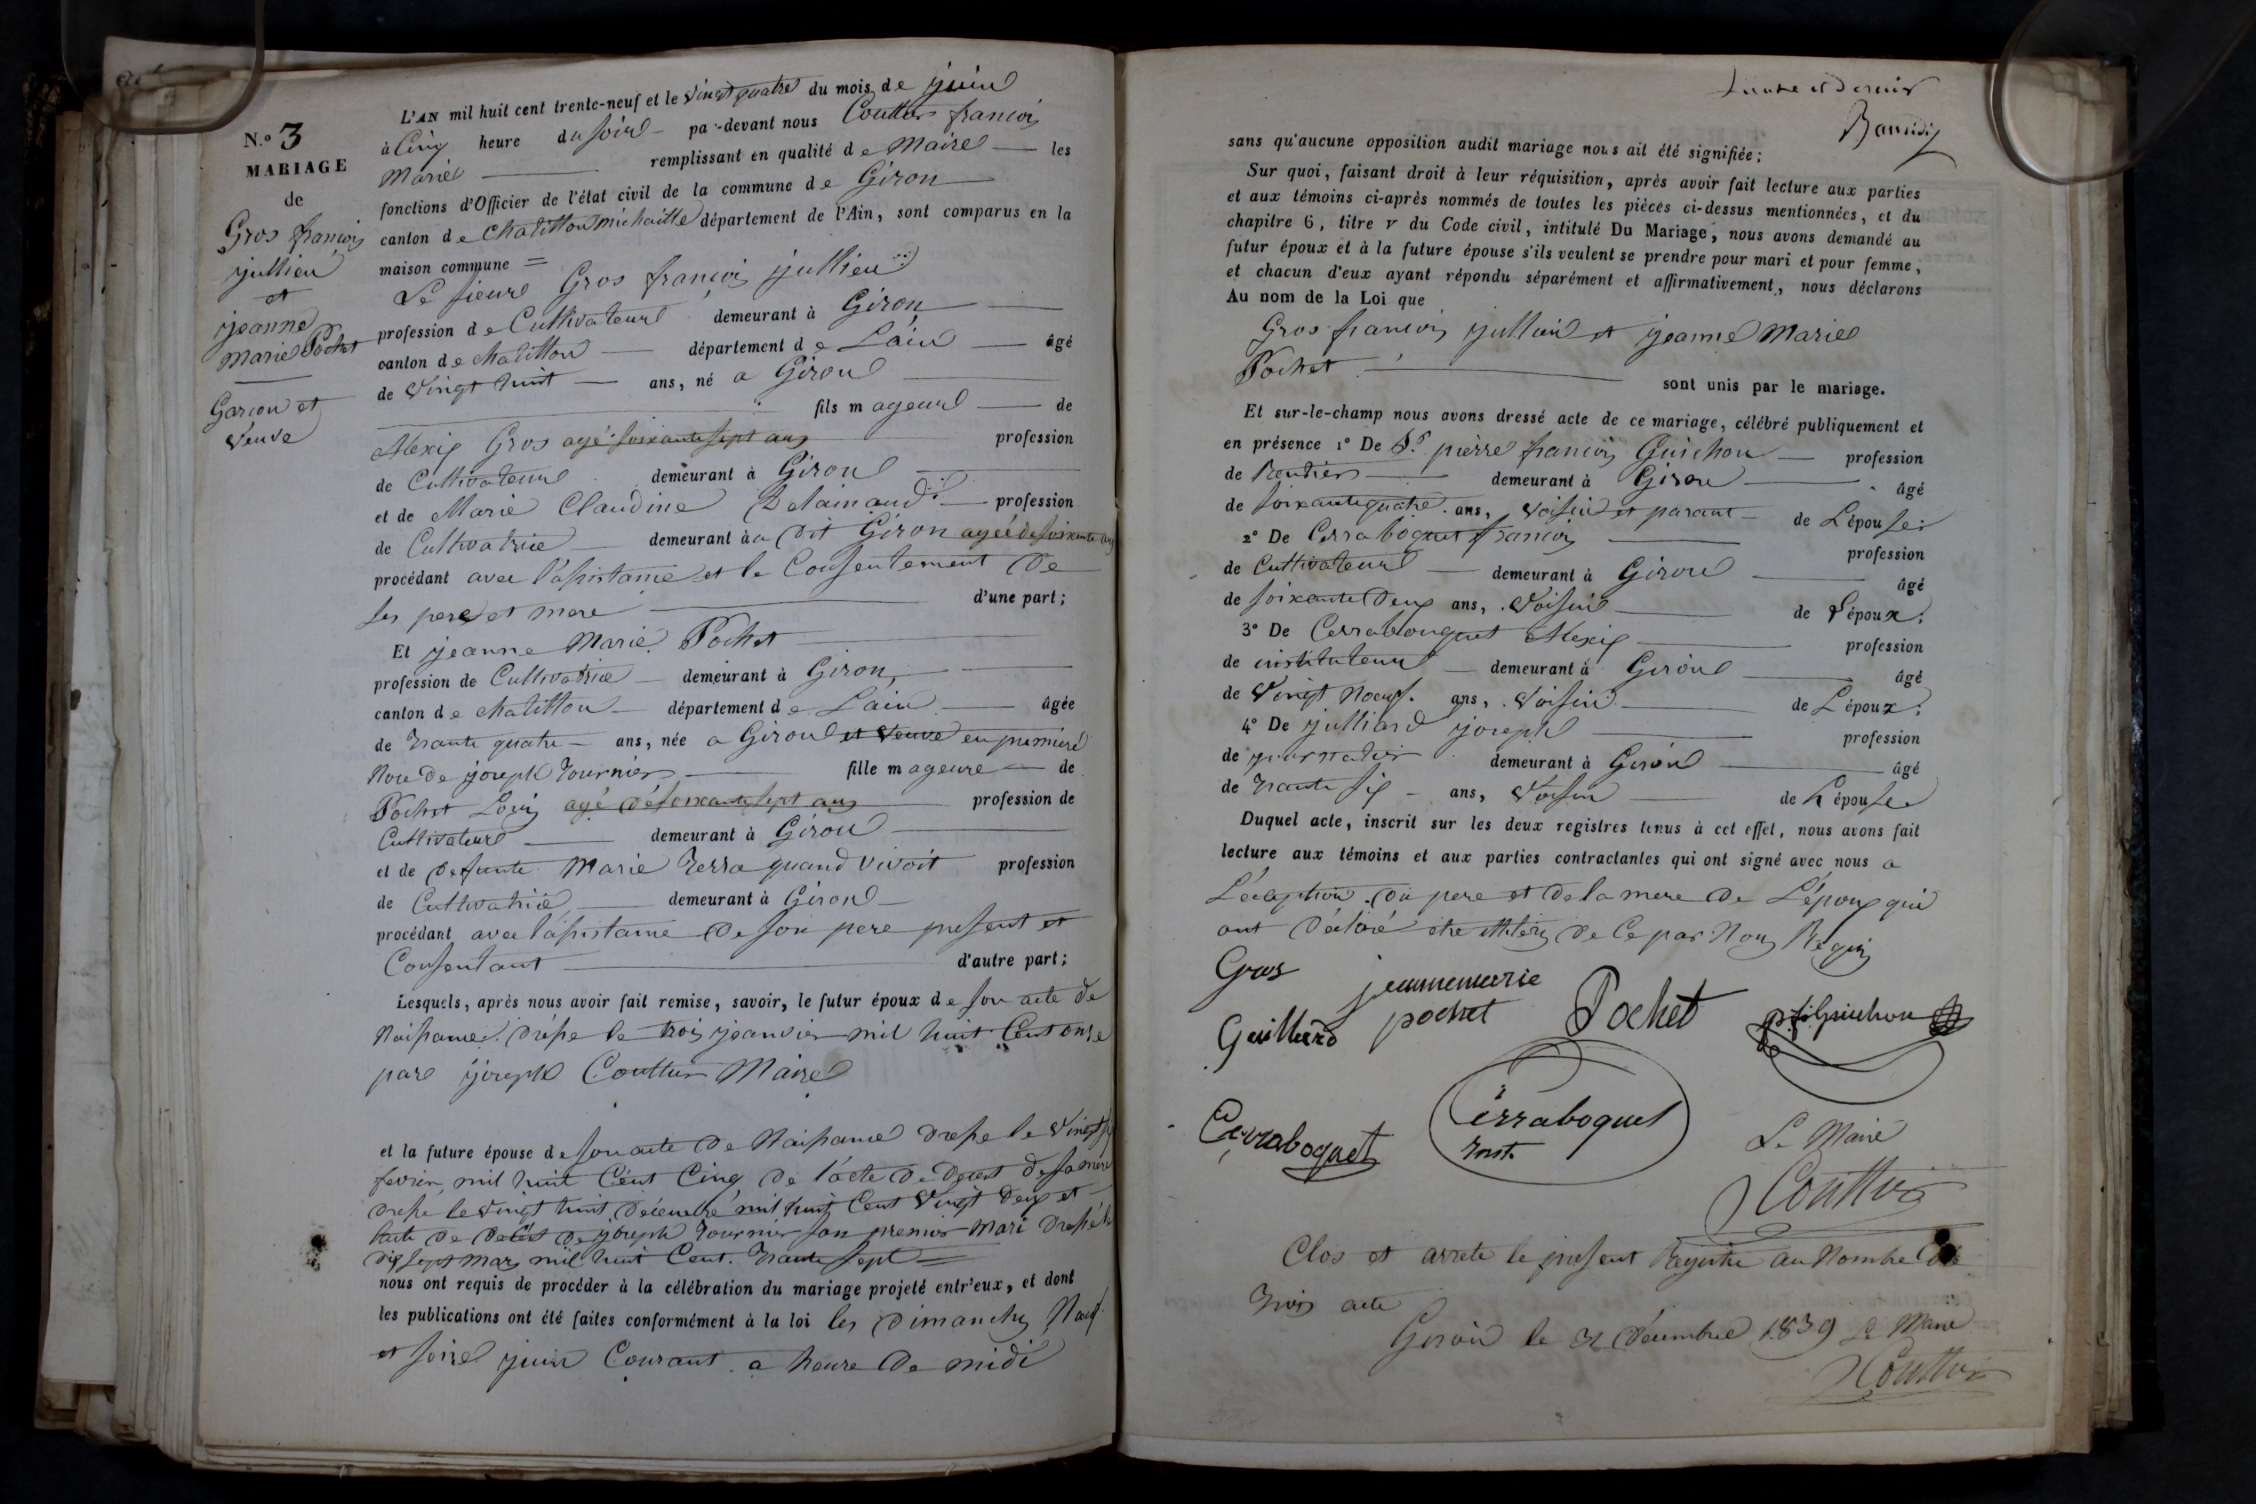 N.o 3
MARIAGE
de
Gros françois
jullien
et
jeanne
marie Pochet
Garçon et
veuve
L'AN mil huit cent trente-neuf et le vingt quatre du mois de juin
à Cinq heure du soire par-devant nous Couttier françois
Marie remplissant en qualité de Maire les
fonctions d'Officier de l'état civil de la commune de Giron
canton de chatillon michaille département de l'Ain, sont comparus en la
maison commune =
Le sieure Gros françois jullien
profession de Cultivateure demeurant à Giron
canton de chatillon département de L'ain âgé
de vingt huit ans, né a Giron
fils mageure de
Alexis Gros agé soixante sept ans profession
de Cultivateure demeurant à Giron
et de Marie Claudine profession
de Cultivatrice demeurant à a dit Giron agéé de soixante ans
procédant avec l'assistame et le Consentement De
ses pere et mere d'une part;
Et jeanne Marie Pochet
profession de Cultivatrice demeurant à Giron,
canton de chatillon département de L'ain âgée
de trante quatre ans, née a Giron et veuve en premiere
Nore de joseph tournier fille mageure de
Pochet Louis agé de soixante sept ans profession de
Cultivateure demeurant à Giron
et de Defunte Marie Terra quand vivoit profession
de Cultivatrice demeurant à Giron
procédant avec l'assistame de son pere present et
Consentant d'autre part;
Lesquels, après nous avoir fait remise, savoir, le futur époux de son acte de
Naissance drésse le trois jeanvier mil huit Cent onze
pare joseph Couttier Maire
et la future épouse de son acte De Naissance dresse le vingt
fevrier mil huit Cent Cinq De l'acte De Deces de sa mere
dresse le vingt huit décembre mil huit Cent vingt deux et
lacte de décés de joseph tournier son premier mari dressé le
dix sept mars mil huit Cent trante sept =
nous ont requis de procéder à la célébration du mariage projeté entr'eux, et dont
les publications ont été faites conformément à la loi les Dimanches Neuf
et seize juin Courant a heure De midi
sans qu'aucune opposition audit mariage nous ait été signifiée;
Sur quoi, faisant droit à leur réquisition, après avoir fait lecture aux parties
et aux témoins ci-après nommés de toutes les pièces ci-dessus mentionnées, et du
chapitre 6, titre v du Code civil, intitulé Du Mariage, nous avons demandé au
futur époux et à la future épouse s'ils veulent se prendre pour mari et pour femme,
et chacun d'eux ayant répondu séparément et affirmativement, nous déclarons
Au nom de la Loi que
Gros françois jullien et jeanne Marie
Pochet sont unis par le mariage.
Et sur-le-champ nous avons dressé acte de ce mariage, célébré publiquement et
en présence 1° De Sr. pierre françois Guichon profession
de Rentier demeurant à Giron âgé
de soixante quatre ans, voisin et parant de L'épouse:
2° De Cerraboquet françois profession
de Cultivateure demeurant à Giron âgé
de soixante Deux ans, voisin de L'époux;
3° De Cerrabouquet Alexis profession
de instituteur demeurant à Giron âgé
de vingt Noeuf ans, voisin de L'époux;
4° De julliard joseph profession
de journalier demeurant à Giron âgé
de trante six ans, voisin de L'épouse
Duquel acte, inscrit sur les deux registres tenus à cet effet, nous avons fait
lecture aux témoins et aux parties contractantes qui ont signé avec nous a
L'éceaption du pere et de la mere De L'époux qui
ont Déclaré etre De Ce par Nous Requis
Gros
jeannemarie
pochet
Pochet
pf Guichon
Guilliard
Cerraboquet
Cerraboquet
Inst.
Le Maire
Couttier
Clos et arrete le present Registre au Nombre De
trois acte
Giron le 31 Décembre 1839 Le Maire
Couttier